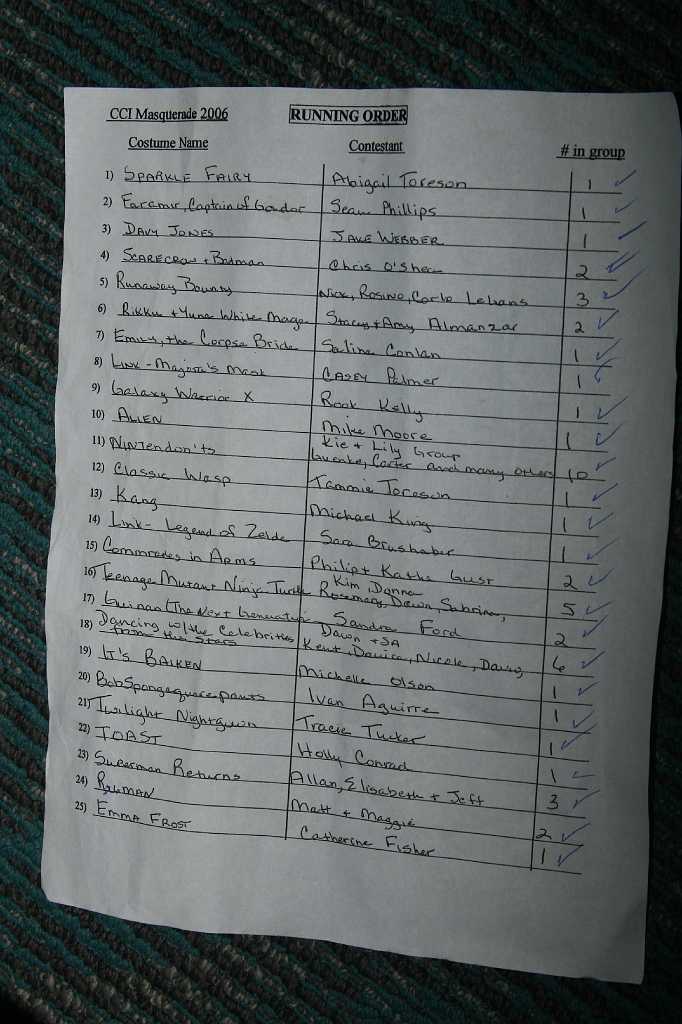 CCI Masquerade 2006 RUNNING ORDER
Costume Name Contestant # in group
1) SPARKLE FAIRY Abigail Toreson 1
2) Faramir, Captain of Gondor Sean Phillips 1
3) DAVY JONES JAKE WEBBER 1
4) SCARECROW + Batman Chris O'Shea 2
5) Runaway Bounty Nick, Rosine, Carlo Lehans 3
6) Rikku + Yuna White Mage Stacey + Amy Almanzar 2
7) Emily, the Corpse Bride Salina Conlan 1
8) Link - Majora's Mask CASEY Palmer 1
9) Galaxy Warrior X Rook Kelly 1
10) ALIEN Mike Moore 1
11) NINTendon'ts Kie + Lily Group
Carter and many others 10
12) Classic Wasp Tammie Toreson 1
13) Kang Michael King 1
14) Link - Legend of Zelda Sara Brushaber 1
15) Commrades in Arms Philip + Kathe Gust 2
16) Teenage Mutant Ninja Turtle Kim, Donna
Rosemary, Dawn, Sabrina, 5
17) Guinan (The Next Generation Sandra Ford 2
18) Dancing w/the Celebrities Dawn + SA
from the Stars Kent, Nicole, David, 6
19) IT'S BALKEN Michelle Olson 1
20) BobSpongesquarepants Ivan Aguirre 1
21) Twilight Nightgown Tracie Tucker 1
22) TOAST Holly Conrad 1
23) Superman Returns Allan, Elisabeth + Jeff 3
24) Matt + Maggie 2
25) EMMA FROST Catherine Fisher 1